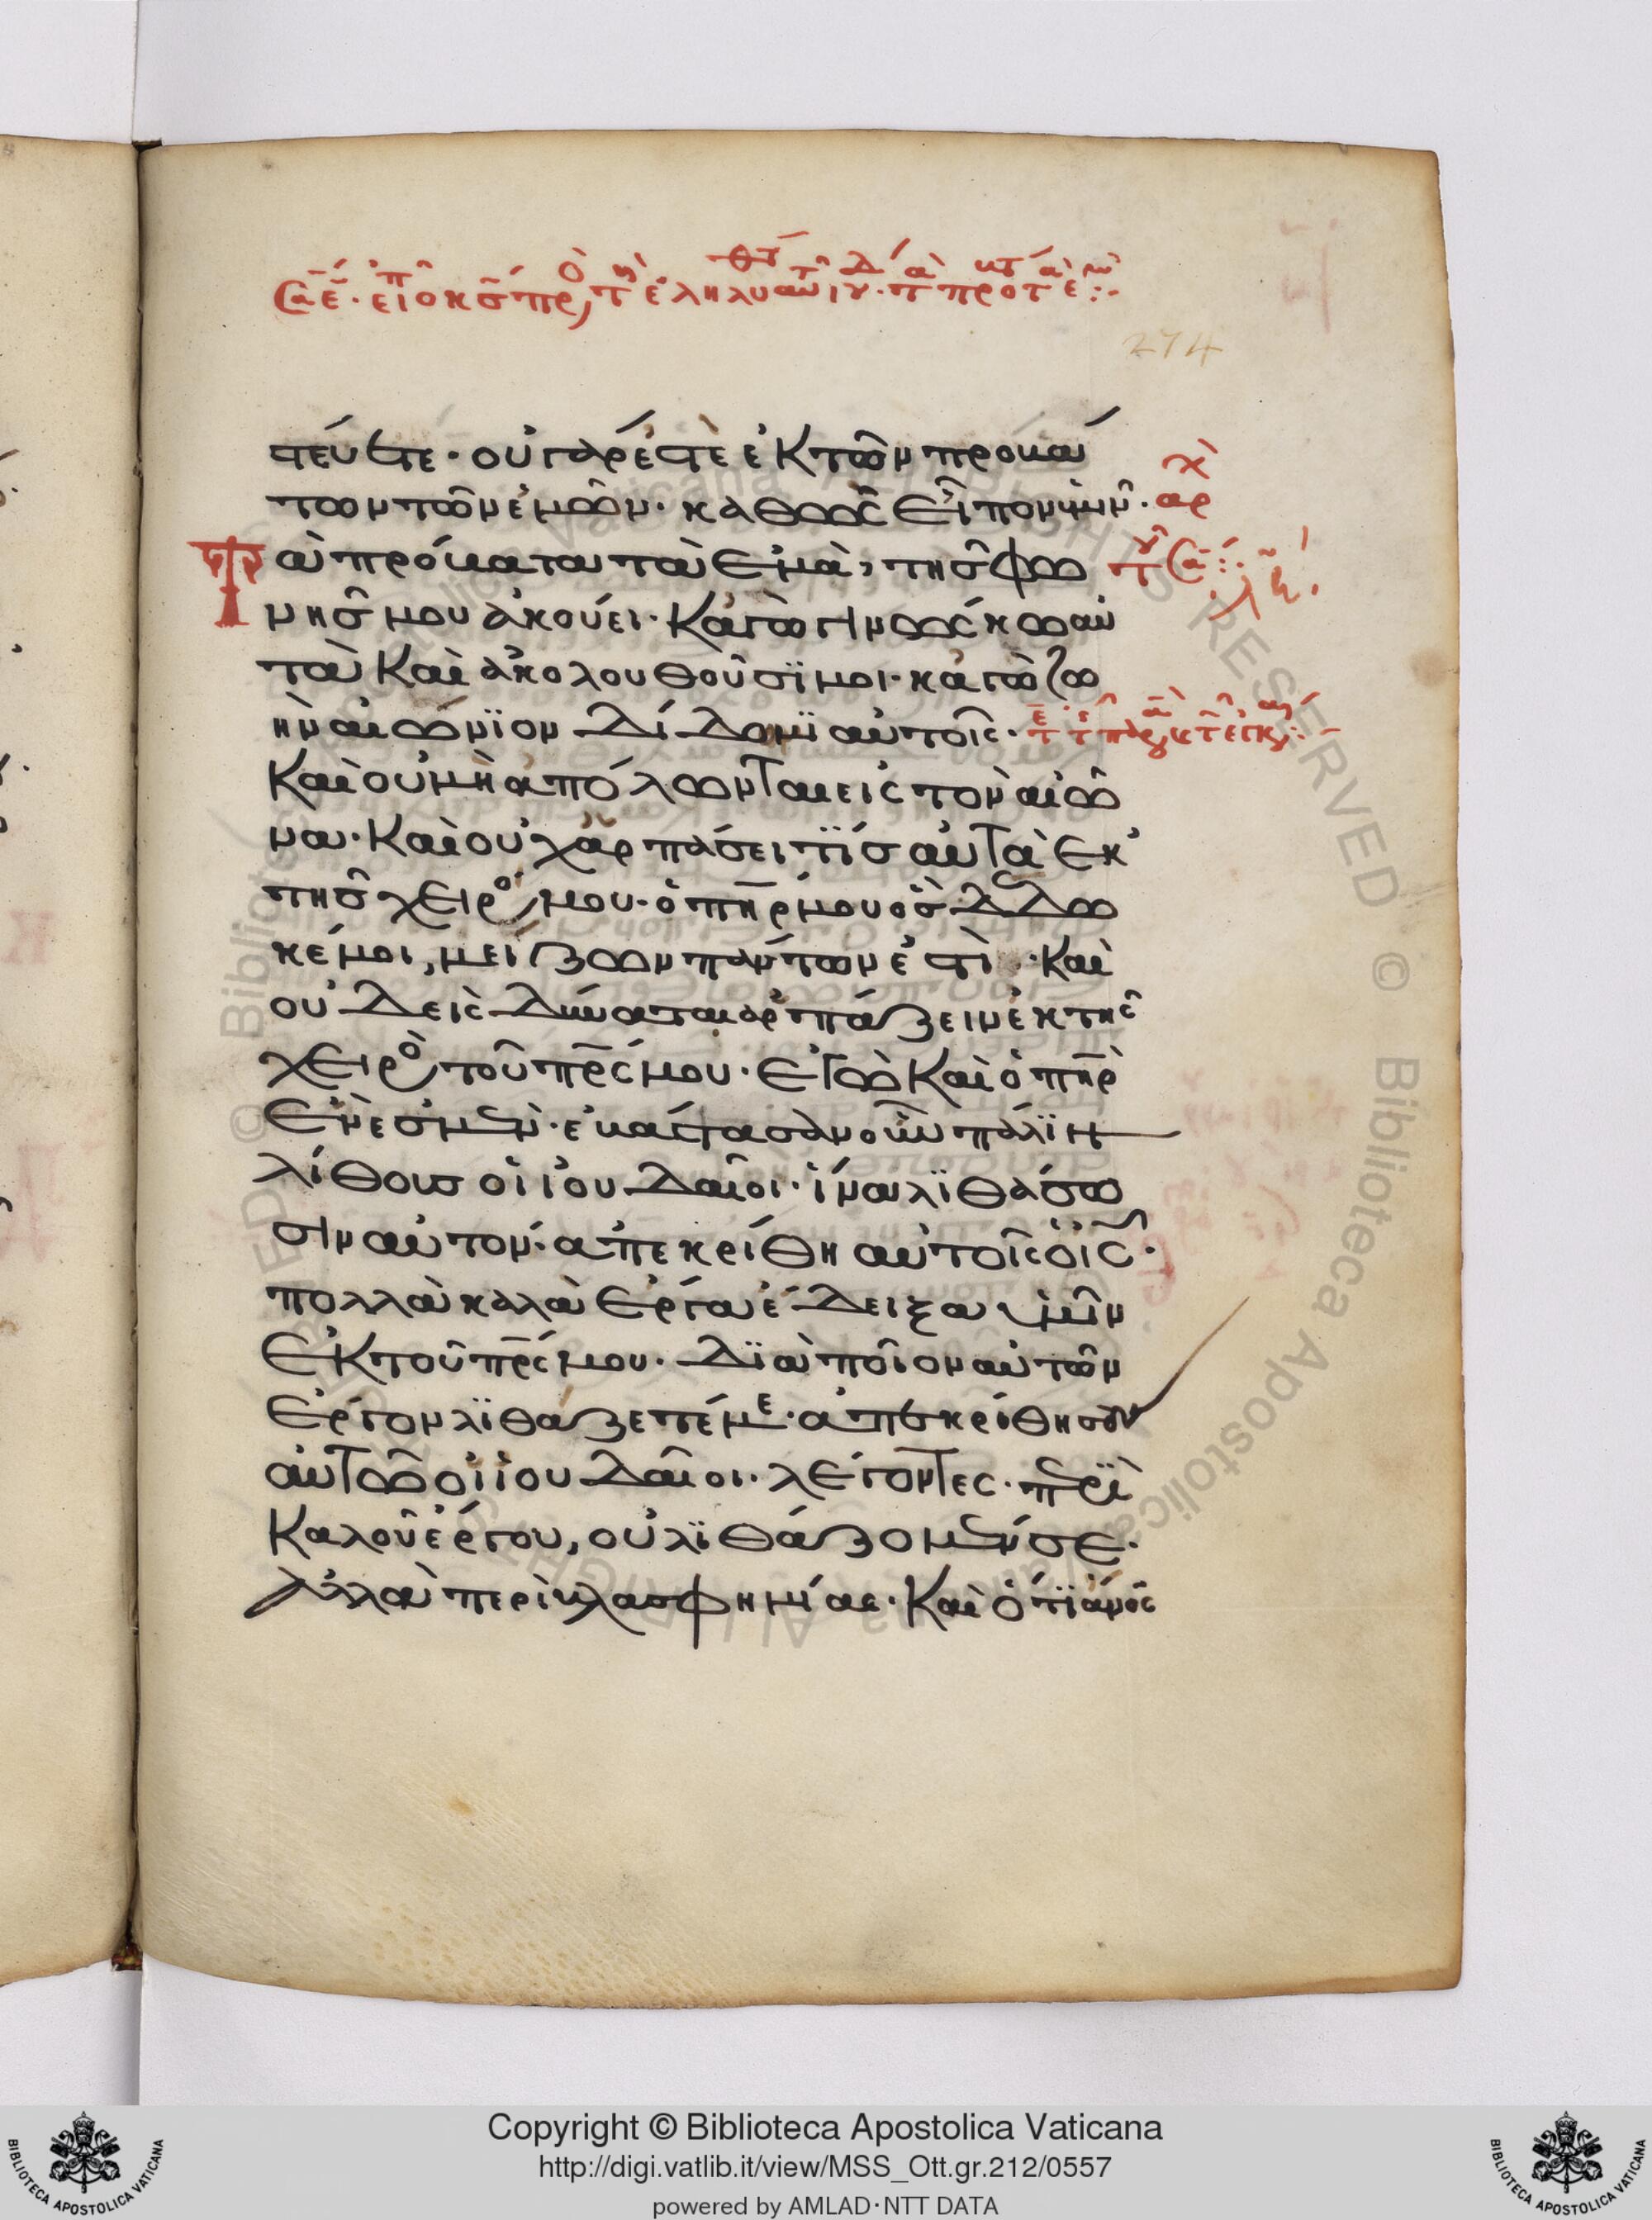 274
τεύετε· οὐ γὰρ ἐστὲ ἐκ τῶν προβά
των τῶν ἐμῶν· καθὼς εἶπον ὑμῖν·
Τὰ πρόβατα τὰ ἐμὰ, τῆς φω
νῆς μου ἀκούει· Κἀγὼ γινώσκω αὐ
τὰ καὶ ἀκολουθοῦσϊ μοι· κἀγὼ ζω
ὴν αἰώνϊον δίδωμϊ αὐτοῖς·
Καὶ οὐ μὴ ἀπόλωνται εἰς τὸν αἰῶ
να· Καὶ οὐχ ἁρπάσει τϊς αὐτὰ ἐκ
τῆς χειρός μου· ὁ πηρ μου ὃς δέδω
κέ μοι, μείζων πάντων ἐστὶ· Καὶ
οὐδεὶς δύναται ἁρπάζειν ἐκ τῆς
χειρὸς τοῦ πρς μου· Ἐγὼ καὶ ὁ πηρ
ἕν ἐσμεν· ἐβάστασαν οὖν πάλϊν
λίθους οἱ ἰουδαῖοι· ἵνα λϊθάσω
σιν αὐτόν· ἀπεκρίθη αὐτοῖς ὁ ις·
πολλὰ καλὰ ἔργα ἔδειξα ὑμῖν
ἐκ τοῦ πρς μου· Δϊὰ ποῖον αὐτῶν
ἔργον λϊθάζετέ με· ἀπεκρίθησαν
αὐτῶ οἱ ἰουδαῖοι· λέγοντες· περὶ
Καλοῦ ἔργου, οὐ λϊθάζομέν σε·
ἀλλὰ περὶ βλασφημίας· Καὶ ὅτϊ ἄνος
Copyright © Biblioteca Apostolica Vaticana
http://digi.vatlib.it/view/MSS_Ott.gr.212/0557
powered by AMLAD·NTT DATA